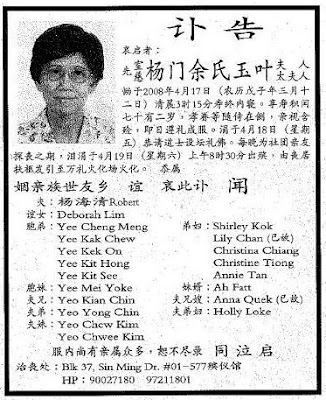 讣告
哀启者：
先室慈 杨门余氏玉叶 夫人 太夫人
恸于2008年4月17日（农历戊子年三月十
二日）清晨3时15分寿终内寝。享寿积闰
七十有二岁，孝眷等随侍在侧，亲视含
殓，即日遵礼成服。涓于4月18日（星期
五）恭请道士设坛礼佛。每晚为社团亲友
探丧之期，泪涓于4月19日（星期六）上午8时30分出殡，由丧居
扶柩发引至万礼火化场火化。 叅属
姻亲族世友乡 谊 哀此讣 闻
夫：杨海清Robert
谊女：Deborah Lim
胞弟：Yee Cheng Meng 弟妇：Shirley Kok
Yee Kak Chew Lily Chan (已故)
Yee Kek On Christina Chiang
Yee Kit Hong Christine Tiong
Yee Kit See Annie Tan
胞妹：Yee Mei Yoke 妹婿：Ah Fatt
夫兄：Yeo Kian Chin 夫兄嫂：Anna Quek (已故)
夫弟：Yeo Yong Chin 夫弟妇：Holly Loke
夫妹：Yeo Chew Kim
Yeo Chwee Kim
服内尚有亲属众多，恕不尽录 同泣启
治丧处：Blk 37, Sin Ming Dr. #01-577殡仪馆
HP：90027180 97211801